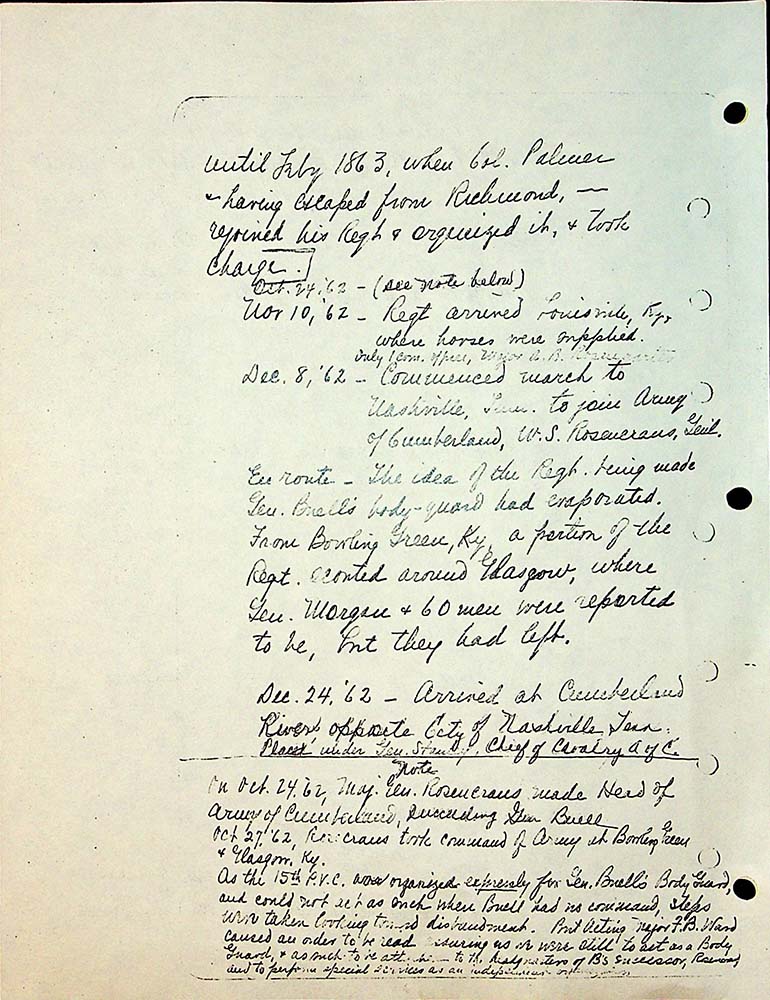 until Feby 1863, when Col. Palmer
& having escaped from Richmond, —
rejoined his Regt & organized it, & took
charge.]
Oct. 24, '62 - (see note below)
Nov 10, '62 - Regt arrived Louisville, Ky.,
where horses were supplied.
Only 1 Com. officer, Major A. B.
Dec. 8, '62 - Commenced march to
Nashville, Tenn. to join Army
of Cumberland, W. S. Rosencrans, Genl.
En route - The idea of the Regt. being made
Gen. Buell's body-guard had evaporated.
From Bowling Green, Ky, a portion of the
Regt. scouted around Glasgow, where
Gen. Morgan & 60 men were reported
to be, but they had left.
Dec. 24, '62 - Arrived at Cumberland
River opposite City of Nashville Tenn.
Placed under Gen. Stanley, Chief of Cavalry A of C.
Note
On Oct. 24, 62, Maj. Gen. Rosencrans made Head of
Army of Cumberland, succeeding Gen Buell
Oct 27, '62, Rosencrans took command of Army at Bowling Green
& Glasgow, Ky.
As the 15th P.V.C. was organized expressly for Gen. Buell's Body Guard,
and could not act as such when Buell had no command, steps
were taken looking toward disbandment. But Acting Major F. B. Ward
caused an order to be read assuring us we were still to act as a Body
Guard, & as such to be to the headquarters of B's successor,
and to perform special services as an independent